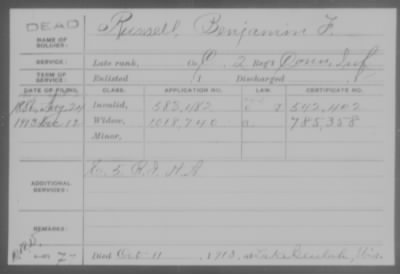 DEAD
NAME OF SOLDIER:
Russell, Benjamin F.
SERVICE:
Late rank, Co. C, 2 Reg't Conn. Inf.
TERM OF SERVICE:
Enlisted , 1 Discharged , 1
DATE OF FILING. CLASS. APPLICATION NO. LAW. CERTIFICATE NO.
24 Invalid, 583,482 542,402
1913 Dec 12 Widow, 1018,740 785,358
Minor,
ADDITIONAL SERVICES:
E. 5 R.I. H.A.
REMARKS:
Died Oct. 11 , 1913, at Lake Beulah, Wis.